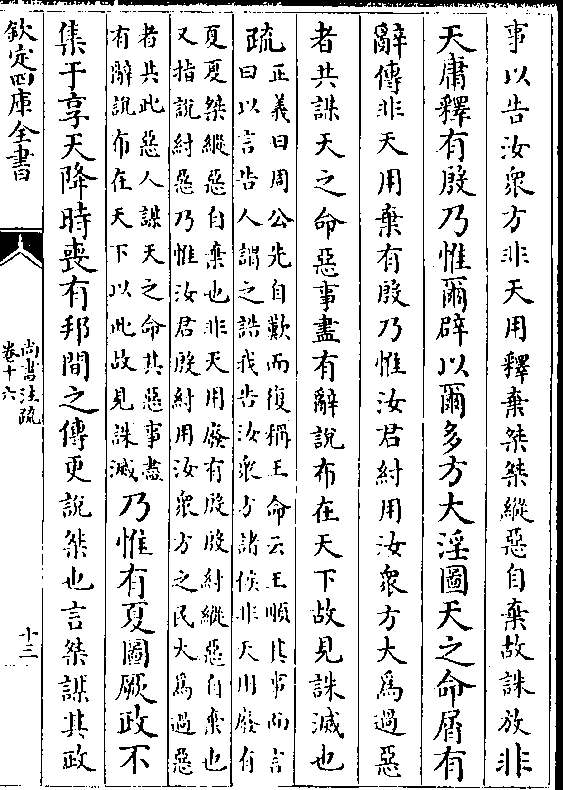 事以告汝衆方非天用釋棄桀桀縱惡自棄故誅放非
天庸釋有殷乃惟爾辟以爾多方大淫圖天之命屑有
辭傳非天用棄有殷乃惟汝君紂用汝衆方大為過惡
者共謀天之命惡事盡有辭說布在天下故見誅滅也
疏正義曰周公先自歎而復稱王命云王順其事而言
曰以言告人謂之誥我告汝衆方諸侯非天用廢有
夏夏桀縱惡自棄也非天用廢有殷殷紂縱惡自棄也
又指說紂惡乃惟汝君殷紂用汝衆方之民大為過惡
者共此惡人謀天之命其惡事盡
有辭說布在天下以此故見誅滅乃惟有夏圖厥政不
集于享天降時喪有邦間之傳更說桀也言桀謀其政
欽定四庫全書
尚書注疏
卷十六
十三